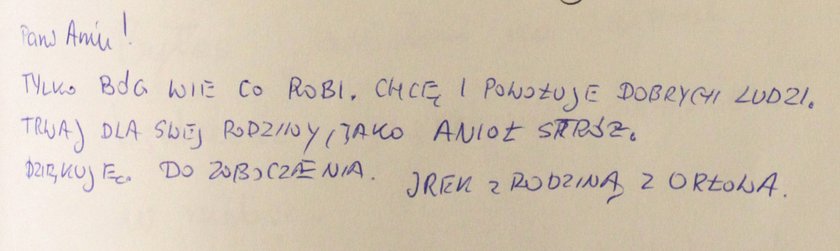 Pani Aniu!
TYLKO BÓG WIE CO ROBI. CHCĘ I POWOŁUJE DOBRYCH LUDZI.
TRWAJ DLA SWEJ RODZINY, JAKO ANIOŁ STRÓŻ.
DZIĘKUJĘ. DO ZOBACZENIA. JREK Z RODZINĄ Z ORŁOWA.